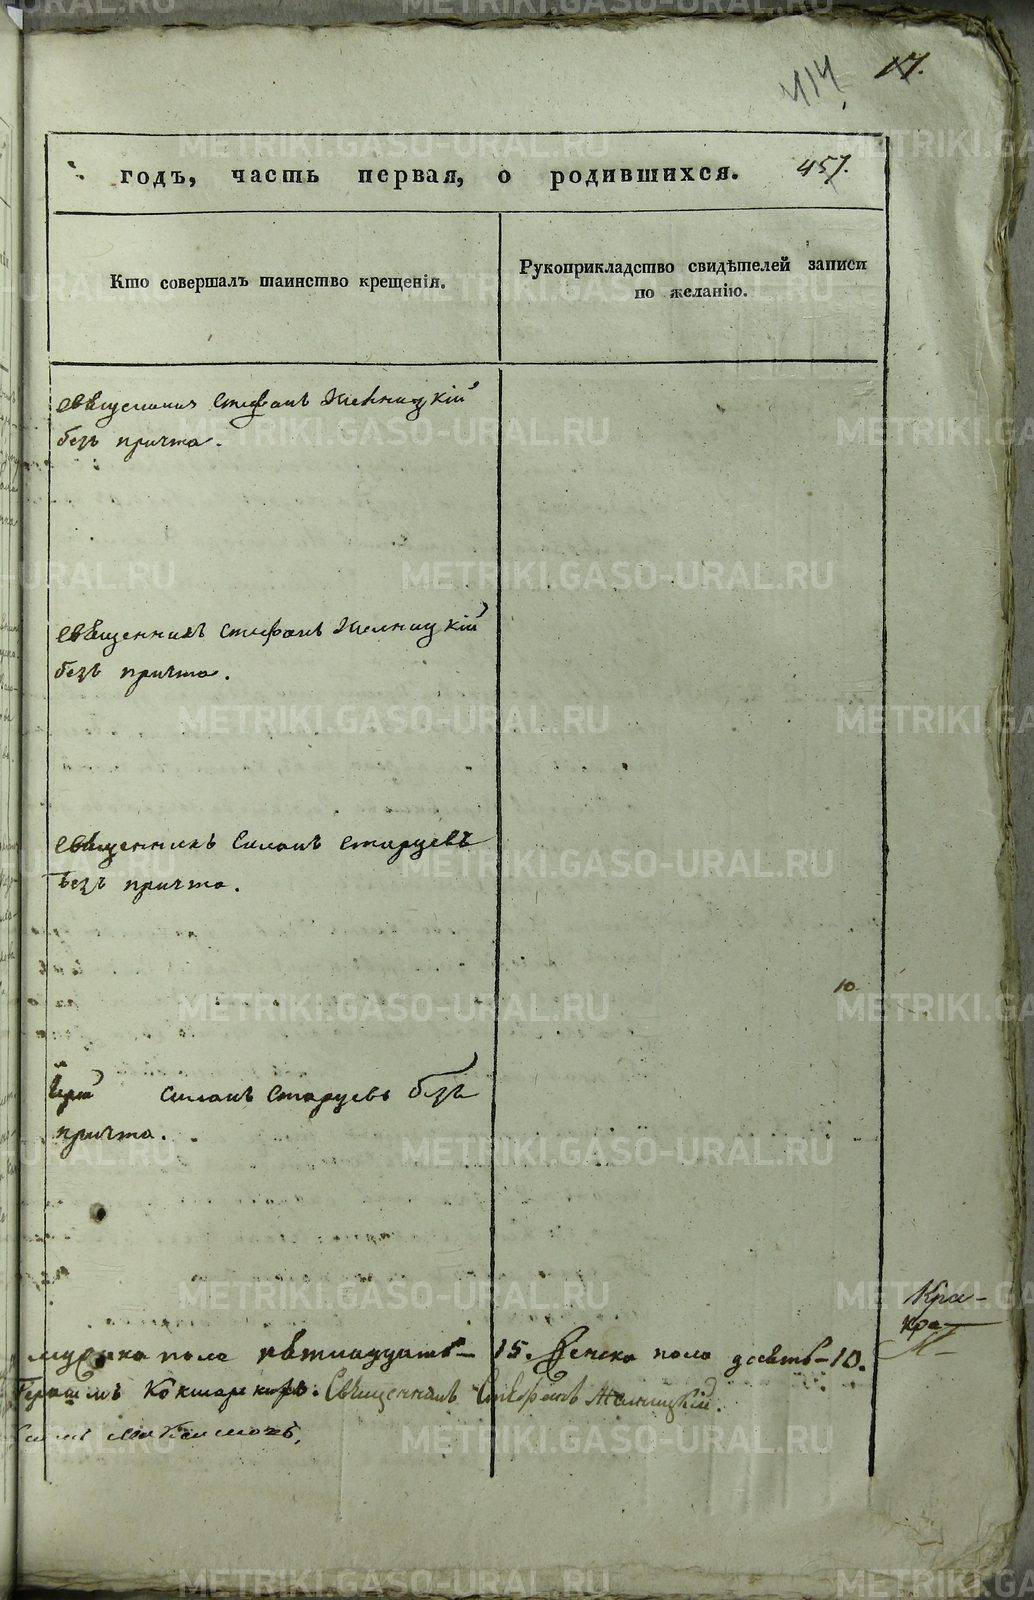 414
17.
годъ, часть первая, о родившихся. 457.
Кто совершалъ таинство крещенія.
Рукоприкладство свидѣтелей записи
по желанію.
священникъ Стефанъ Желницкій
безъ причта.
священникъ Стефанъ Желницкій
безъ причта.
священникъ Силанъ Старцевъ
безъ причта.
10
Іерей Силанъ Старцевъ безъ
причта.
Кра-
кра-
мужска пола пятнадцать - 15. Женска пола десять - 10.
Кокшарскихъ. Священникъ Стефанъ Желницкій.
METRIKI.GASO-URAL.RU